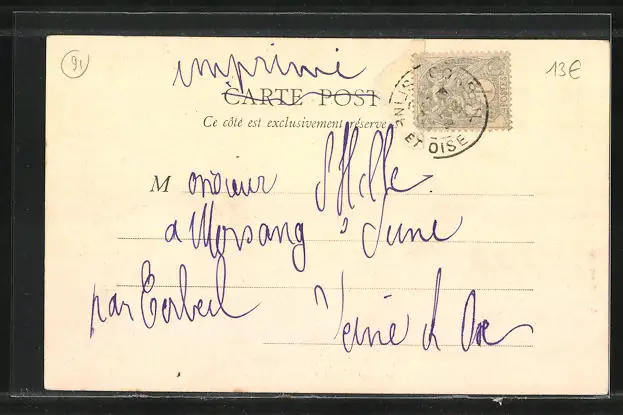 91
13€
imprimé
CARTE POST
Ce côté est exclusivement réservé
ET OISE
Monsieur
a Morsang s/ June
par Corbeil Seine & Oise